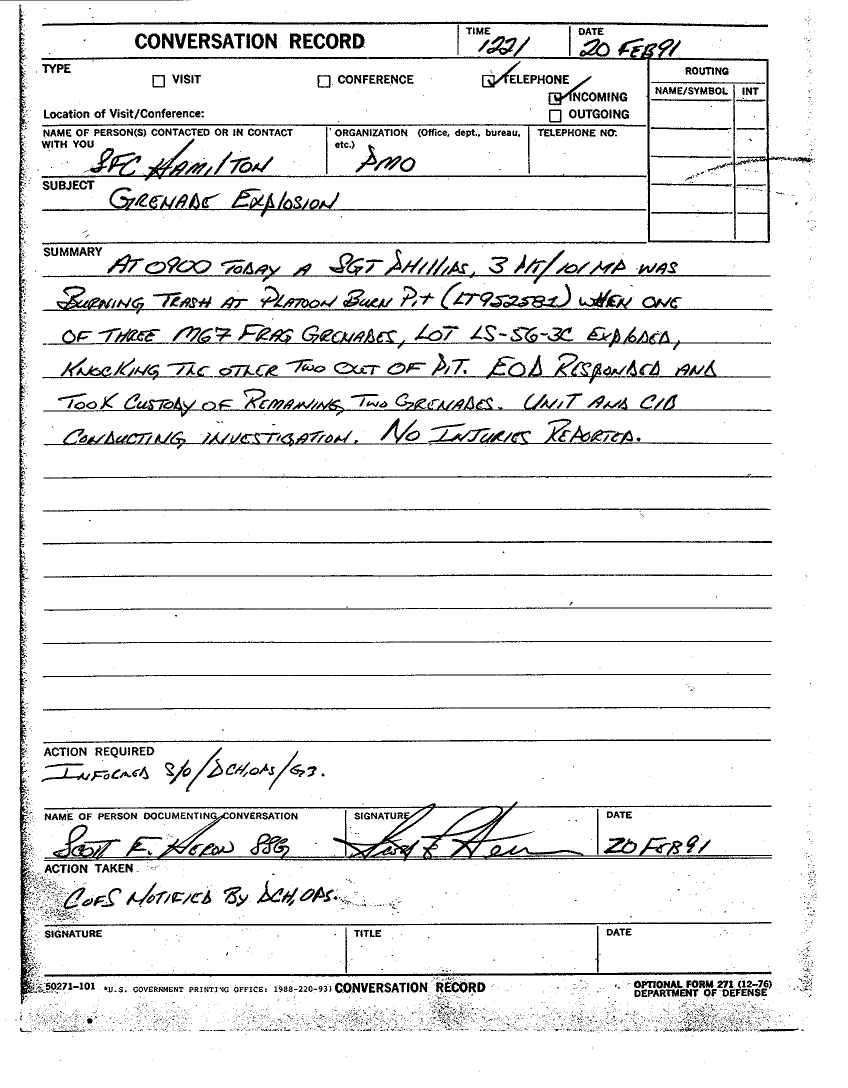 CONVERSATION RECORD
TIME
1221
DATE
20 FEB 91
TYPE
VISIT
CONFERENCE
TELEPHONE
INCOMING
OUTGOING
ROUTING
NAME/SYMBOL INT
Location of Visit/Conference:
NAME OF PERSON(S) CONTACTED OR IN CONTACT
WITH YOU
SFC HAMILTON
ORGANIZATION (Office, dept., bureau,
etc.)
PMO
TELEPHONE NO.
SUBJECT
GRENADE EXPLOSION
SUMMARY
AT 0900 TODAY A SGT PHILLIPS, 3 PLT/101 MP WAS
BURNING TRASH AT PLATOON BURN PIT (LT952581) WHEN ONE
OF THREE M67 FRAG GRENADES, LOT LS-56-3C EXPLODED,
KNOCKING THE OTHER TWO OUT OF PIT. EOD RESPONDED AND
TOOK CUSTODY OF REMAINING TWO GRENADES. UNIT AND CID
CONDUCTING INVESTIGATION. NO INJURIES REPORTED.
ACTION REQUIRED
INFORMED S/O/DCH,OPS/G3.
NAME OF PERSON DOCUMENTING CONVERSATION
SCOTT E. HERON SSG
SIGNATURE
DATE
20 FEB 91
ACTION TAKEN
COFS NOTIFIED BY DCH, OPS.
SIGNATURE
TITLE
DATE
50271-101 *U.S. GOVERNMENT PRINTING OFFICE: 1988-220-93 CONVERSATION RECORD
OPTIONAL FORM 271 (12-76)
DEPARTMENT OF DEFENSE